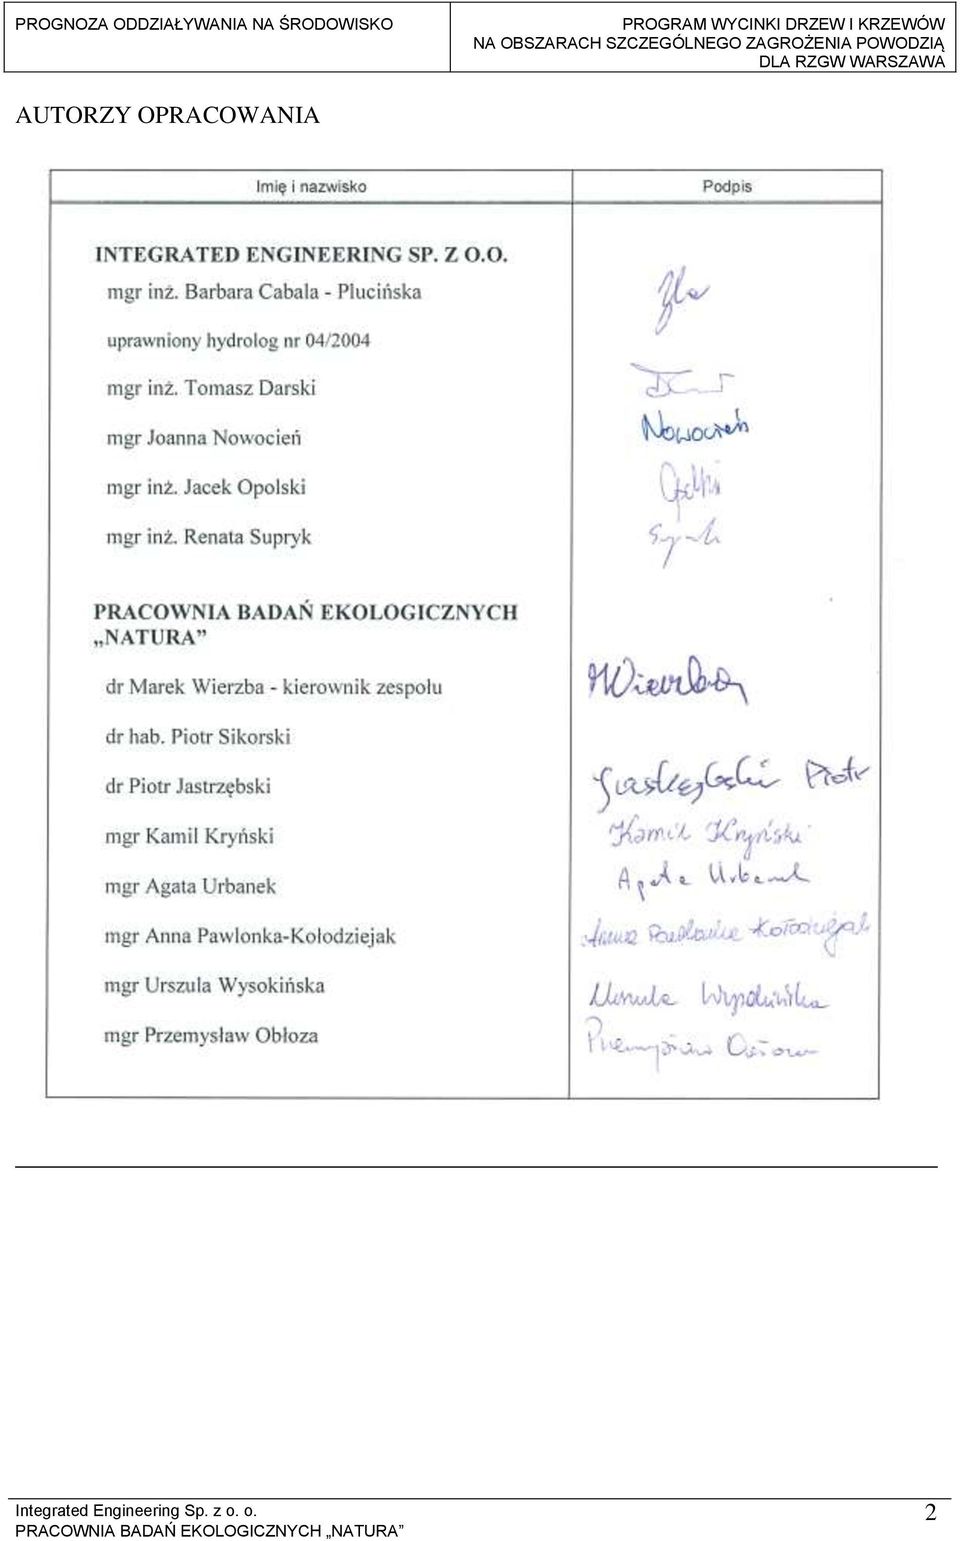 PROGNOZA ODDZIAŁYWANIA NA ŚRODOWISKO
PROGRAM WYCINKI DRZEW I KRZEWÓW
NA OBSZARACH SZCZEGÓLNEGO ZAGROŻENIA POWODZIĄ
DLA RZGW WARSZAWA
AUTORZY OPRACOWANIA
Imię i nazwisko Podpis
INTEGRATED ENGINEERING SP. Z O.O.
mgr inż. Barbara Cabala - Plucińska
uprawniony hydrolog nr 04/2004
mgr inż. Tomasz Darski
mgr Joanna Nowocień Nowocień
mgr inż. Jacek Opolski
mgr inż. Renata Supryk
PRACOWNIA BADAŃ EKOLOGICZNYCH
„NATURA”
dr Marek Wierzba - kierownik zespołu MWierzba
dr hab. Piotr Sikorski
dr Piotr Jastrzębski Jastrzębski Piotr
mgr Kamil Kryński Kamil Kryński
mgr Agata Urbanek Agata Urbanek
mgr Anna Pawlonka-Kołodziejak Anna Pawlonka Kołodziejak
mgr Urszula Wysokińska Urszula Wysokińska
mgr Przemysław Obłoza Przemysław Obłoza
Integrated Engineering Sp. z o. o.
PRACOWNIA BADAŃ EKOLOGICZNYCH „NATURA”
2